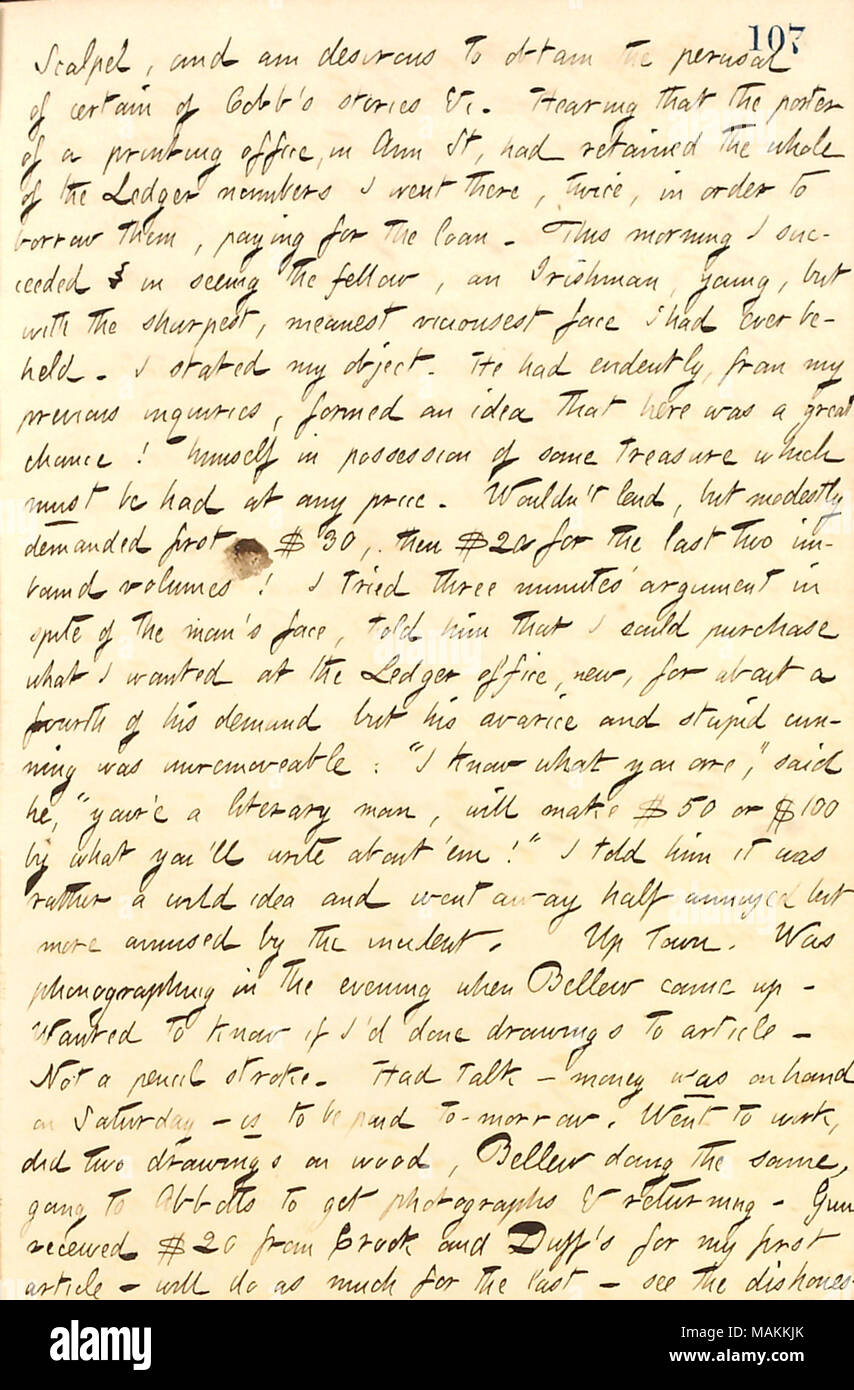 107
Scalpel, and am desirous to obtain the perusal
of certain of Cobb's stories &c. Hearing that the porter
of a printing office, in Ann St, had retained the whole
of the Ledger numbers I went there, twice, in order to
borrow them, paying for the loan. This morning I suc-
ceeded in seeing the fellow, an Irishman, young, but
with the sharpest, meanest viciousest face I had ever be-
held. I stated my object. He had evidently, from my
previous inquiries, formed an idea that here was a great
chance! himself in possession of some treasure which
must be had at any price. Wouldn't lend, but modestly
demanded first $30, then $20 for the last two un-
bound volumes! I tried three minutes' argument in
spite of the man's face, told him that I could purchase
what I wanted at the Ledger office, new, for about a
fourth of his demand but his avarice and stupid cun-
ning was unremoveable: "I know what you are," said
he, "your'e a literary man, will make $50 or $100
by what you'll write about 'em!" I told him it was
rather a wild idea and went away half annoyed but
more amused by the incident. Up town. Was
phonographing in the evening when Bellew came up –
Wanted to know if I'd done drawings to article –
Not a pencil stroke. Had talk – money was on hand
on Saturday – is to be paid to-morrow. Went to work,
did two drawings on wood, Bellew doing the same,
going to Abbotts to get photographs & returning – Gun
received $20 from Crook and Duff's for my first
article – will do as much for the last – see the dishones-
alamy
Image ID: MAKKJK
www.alamy.com